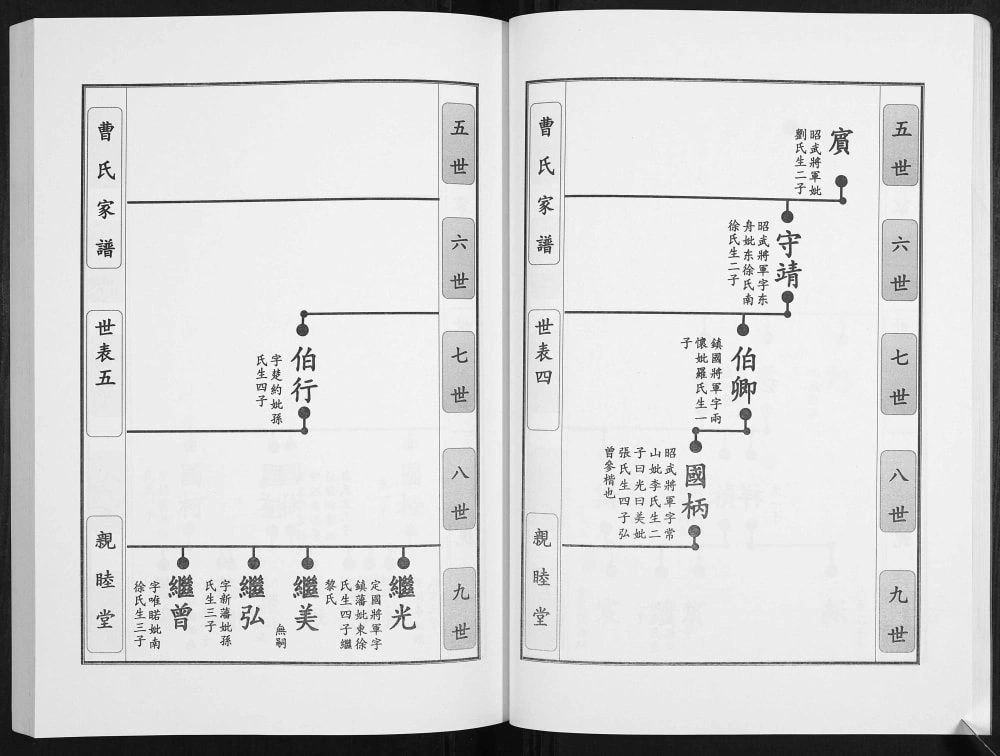 五世
六世
七世
八世
九世
賓
昭武將軍妣
劉氏生二子
守靖
昭武將軍字东
舟妣东徐氏南
徐氏生二子
伯卿
鎮國將軍字兩
懷妣羅氏生一
子
國柄
昭武將軍字常
山妣李氏生二
子曰光曰美妣
張氏生四子弘
曾參楷也
曹氏家譜
世表四
親睦堂
五世
六世
七世
八世
九世
伯行
字楚約妣孫
氏生四子
繼光
定國將軍字
鎮藩妣東徐
氏生四子繼
黎氏
繼美
無嗣
繼弘
字新藩妣孫
氏生三子
繼曾
字唯䁪妣南
徐氏生三子
曹氏家譜
世表五
親睦堂